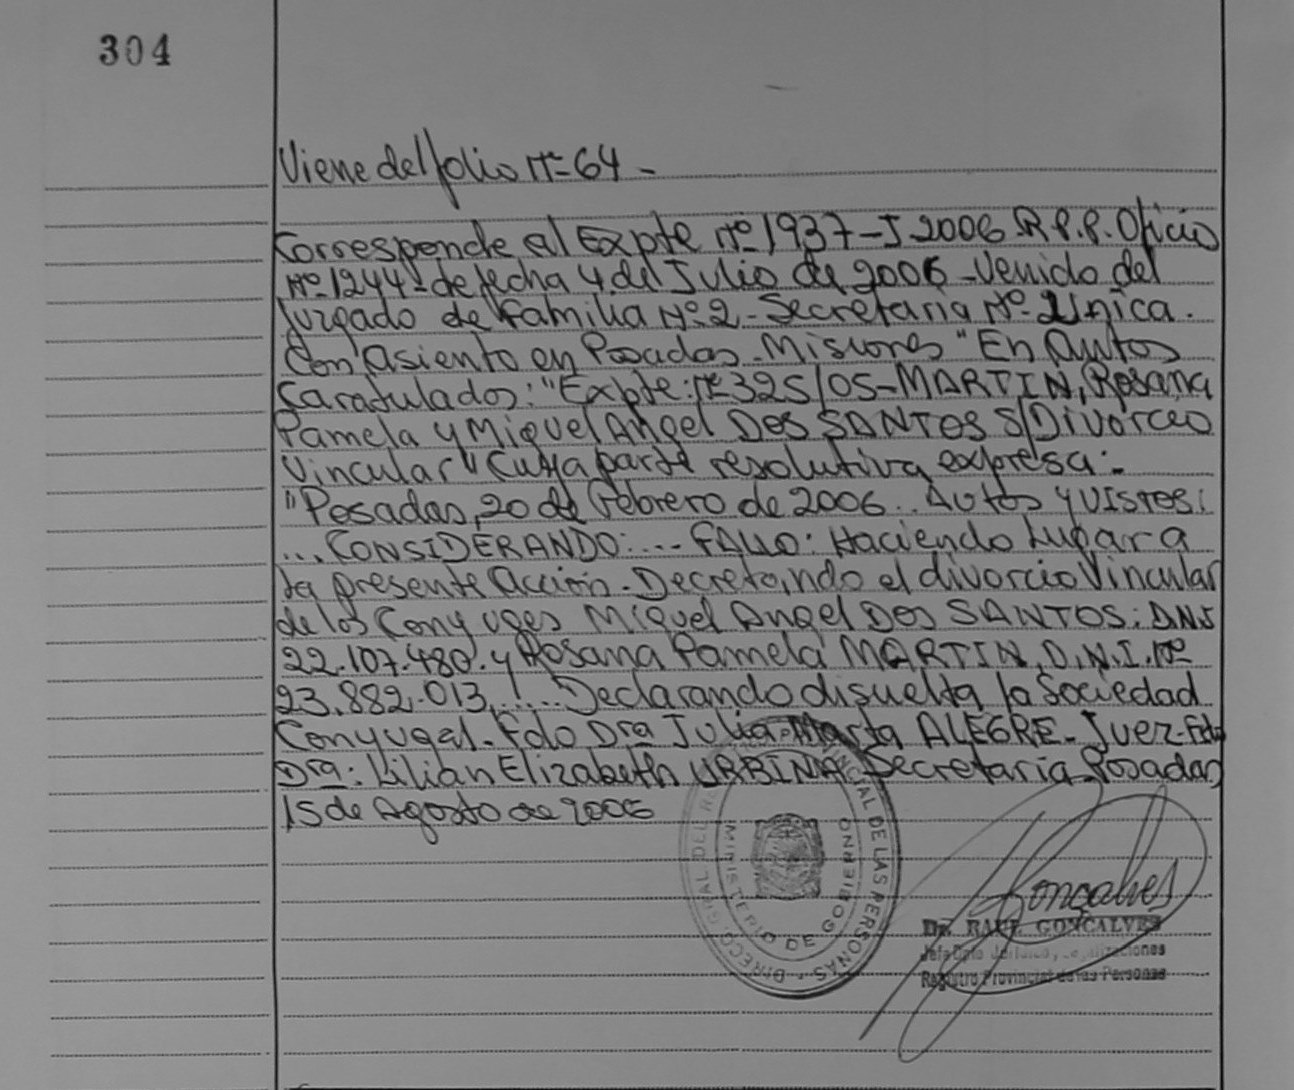 304
Viene del folio Nº 64 -
Corresponde al Expte nº 1937-J-2006 R.P.P. Oficio
Nº 1244 - de fecha 4 de Julio de 2006 - Venido del
Juzgado de Familia Nº 2 - Secretaria Nº Unica.
Con asiento en Posadas - Misiones "En Autos
Caratulados: "Expte: Nº 325/05 - MARTIN, Rosana
Pamela y Miguel Angel DOS SANTOS S/Divorcio
Vincular" Cuya parte resolutiva expresa:-
"Posadas, 20 de Febrero de 2006.. Autos y VISTOS:
... CONSIDERANDO: ... - FALLO: Haciendo Lugar a
la presente Acción - Decretando el divorcio Vincular
de los Conyuges Miguel Angel DOS SANTOS: DNI
22.107.480. y Rosana Pamela MARTIN, D.N.I. Nº
23.882.013, ..... Declarando disuelta la Sociedad
Conyugal - Fdo Dra Julia Marta ALEGRE - Juez - Fdo
Dra: Lilian Elizabeth URBINA Secretaria - Posadas
15 de Agosto de 2006
DE LAS PERSONAS
MINISTERIO DE GOBIERNO
Gonçalves
Dr. RAUL GONCALVES
Registro Provincial de las Personas